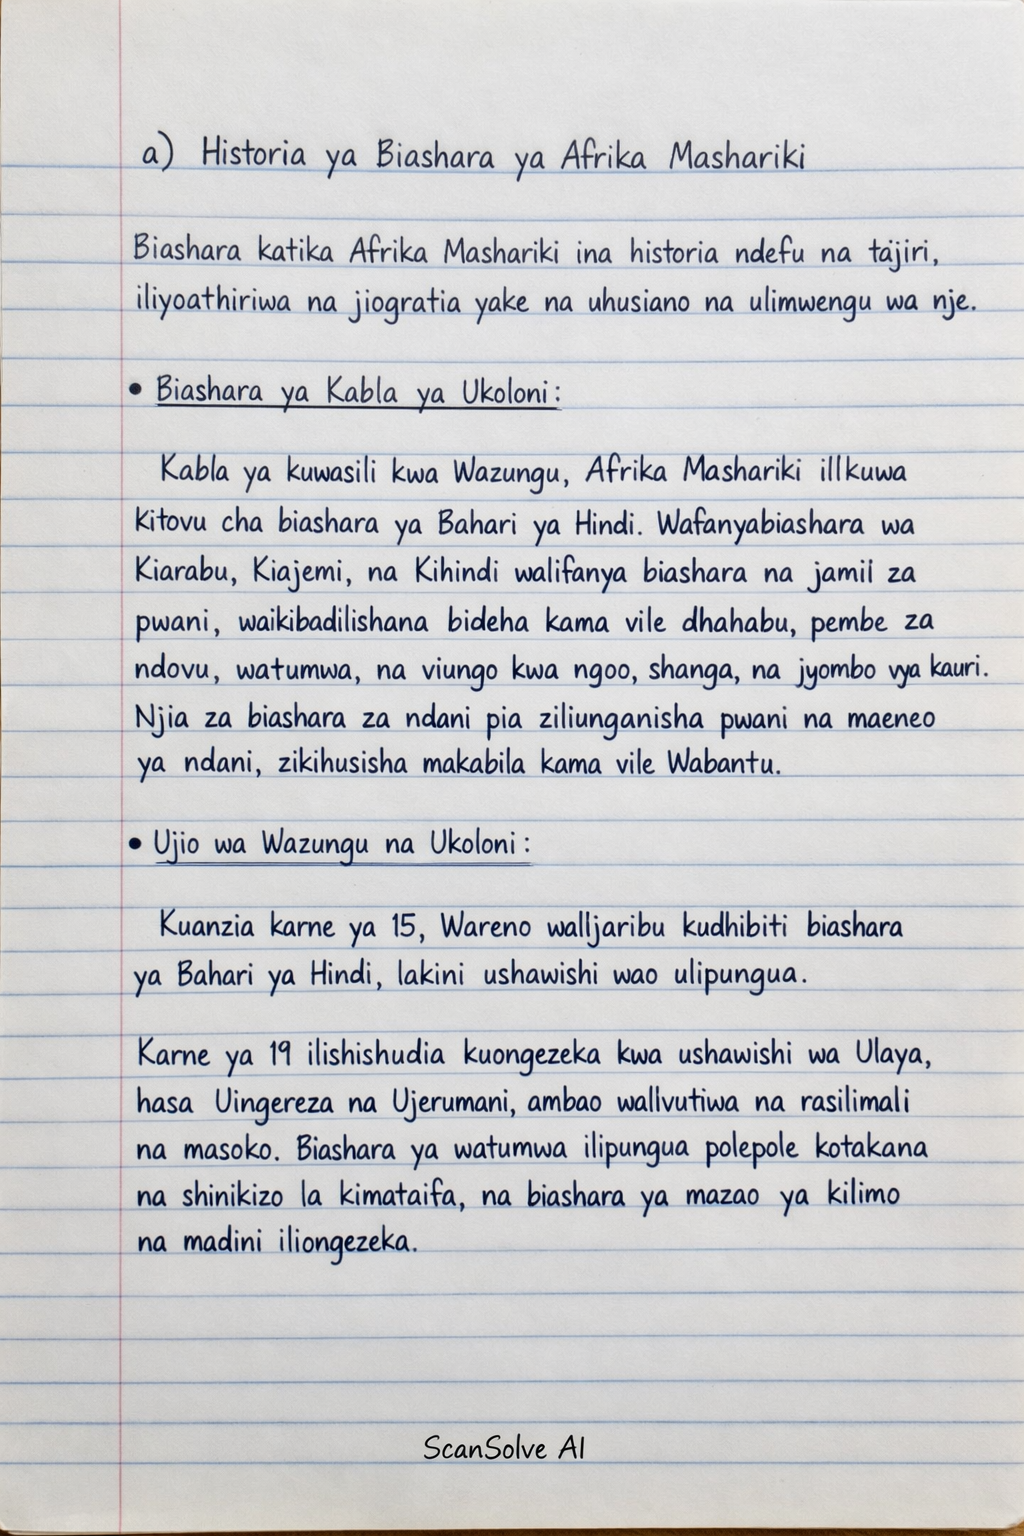 a) Historia ya Biashara ya Afrika Mashariki
Biashara katika Afrika Mashariki ina historia ndefu na tajiri,
iliyoathiriwa na jiogratia yake na uhusiano na ulimwengu wa nje.
• Biashara ya Kabla ya Ukoloni:
Kabla ya kuwasili kwa Wazungu, Afrika Mashariki illkuwa
Kitovu cha biashara ya Bahari ya Hindi. Wafanyabiashara wa
Kiarabu, Kiajemi, na Kihindi walifanya biashara na jamil za
pwani, waikibadilishana bideha kama vile dhahabu, pembe za
ndovu, watumwa, na viungo kwa ngoo, shanga, na jyombo vya kauri.
Njia za biashara za ndani pia ziliunganisha pwani na maeneo
ya ndani, zikihusisha makabila kama vile Wabantu.
• Ujio wa Wazungu na Ukoloni:
Kuanzia karne ya 15, Wareno walljaribu kudhibiti biashara
ya Bahari ya Hindi, lakini ushawishi wao ulipungua.
Karne ya 19 ilishishudia kuongezeka kwa ushawishi wa Ulaya,
hasa Uingereza na Ujerumani, ambao wallvutiwa na rasilimali
na masoko. Biashara ya watumwa ilipungua polepole kotakana
na shinikizo la kimataifa, na biashara ya mazao ya kilimo
na madini iliongezeka.
ScanSolve AI